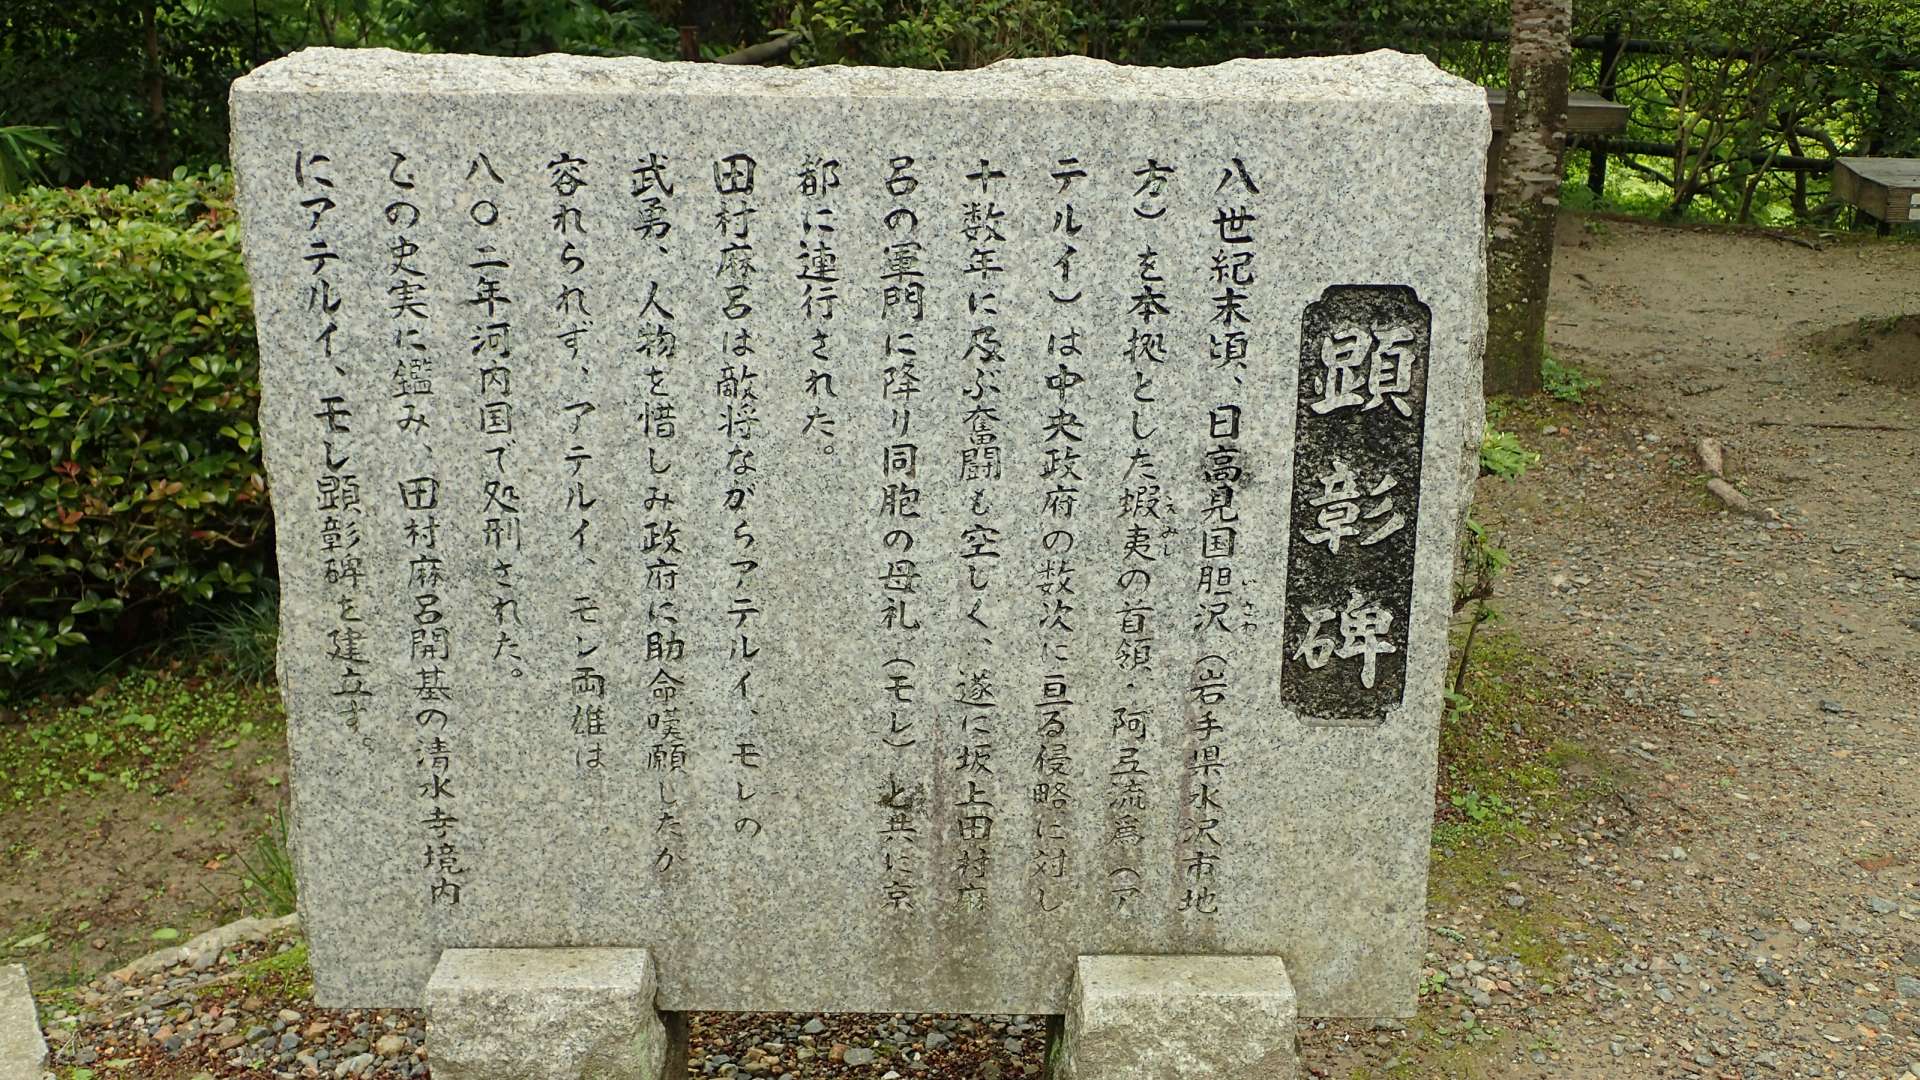 顕彰碑
八世紀末頃、日高見国胆沢（岩手県水沢市地
いさわ
方）を本拠とした蝦夷の首領・阿弖流為（ア
えみし
テルイ）は中央政府の数次に亘る侵略に対し
十数年に及ぶ奮闘も空しく、遂に坂上田村麻
呂の軍門に降り同胞の母礼（モレ）と共に京
都に連行された。
田村麻呂は敵将ながらアテルイ、モレの
武勇、人物を惜しみ政府に助命嘆願したが
容れられず、アテルイ、モレ両雄は
八〇二年河内国で処刑された。
この史実に鑑み、田村麻呂開基の清水寺境内
にアテルイ、モレ顕彰碑を建立す。